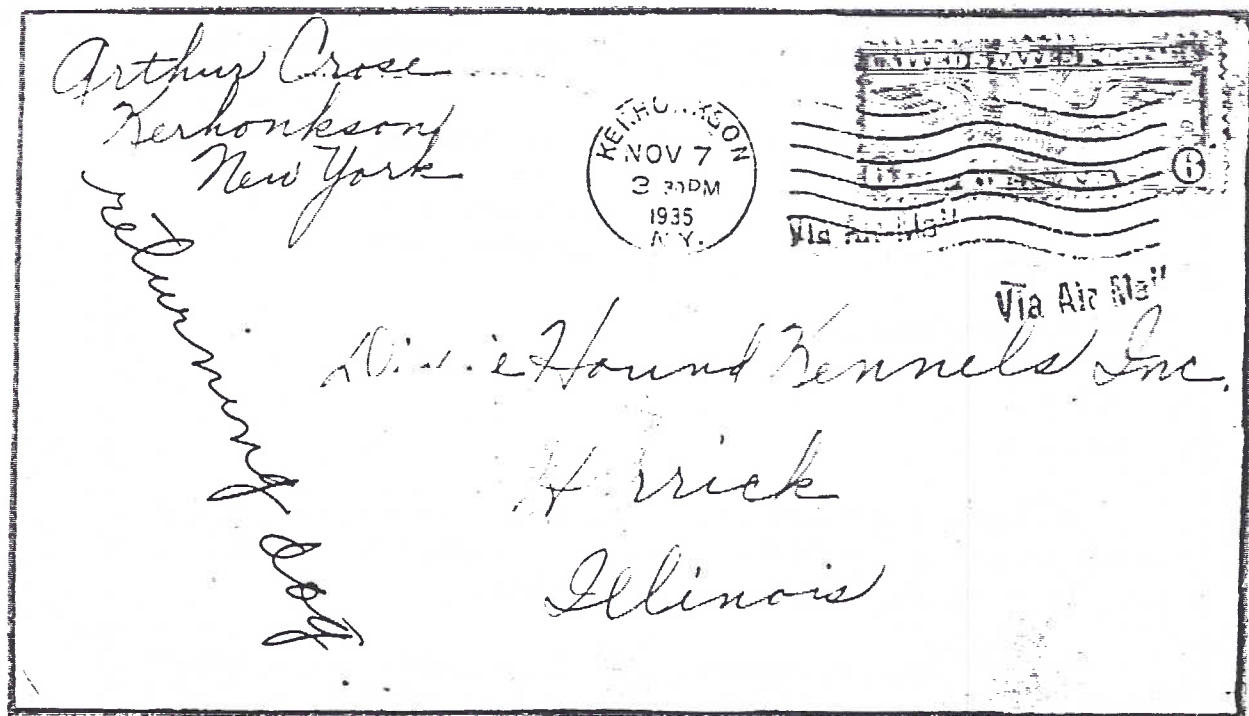 Arthur Crose
Kerhonkson
New York
returning dog
KERHONKSON
NOV 7
3 30 PM
1935
N.Y.
6
Via Air Mail
Via Air Mail
Dixie Hound Kennels Inc.
Herrick
Illinois